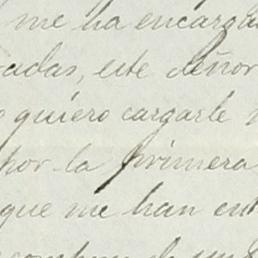 me ha encargad
adas, este Señor
quiero cargarle
por la primera
que me han ent